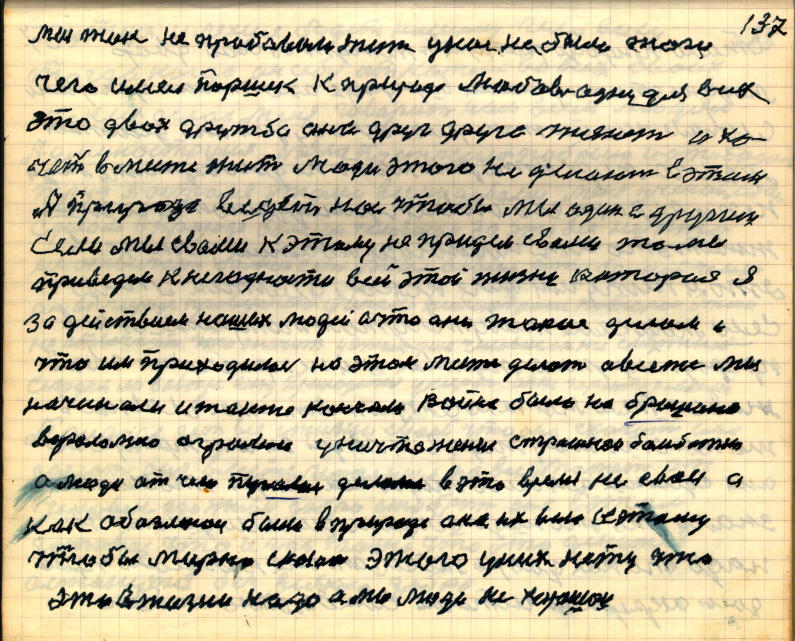 137
мы так не пробовали жит у нас не было того
чего имел Паршек к природе любовь одну для всех
это двох дружба она друг друга тянет и хо-
чет вместе жит люди этого не делают в этим
А природа ведет нас чтобы мы один с другим
Если мы свами к этому не придем свами то мы
приведем к негодности всей этой жизни которая з
за действием наших людей а что они такое делали
что им приходилос на этом месте делат а всеже мы
начинали и также кончали война была на
вероломно уничтожения страшной
а люди от чего делали в это время не свои а
как обозленои были в природе она их вела к этому
чтобы мирно этого у них нету что
это в жизни надо а мы люди не